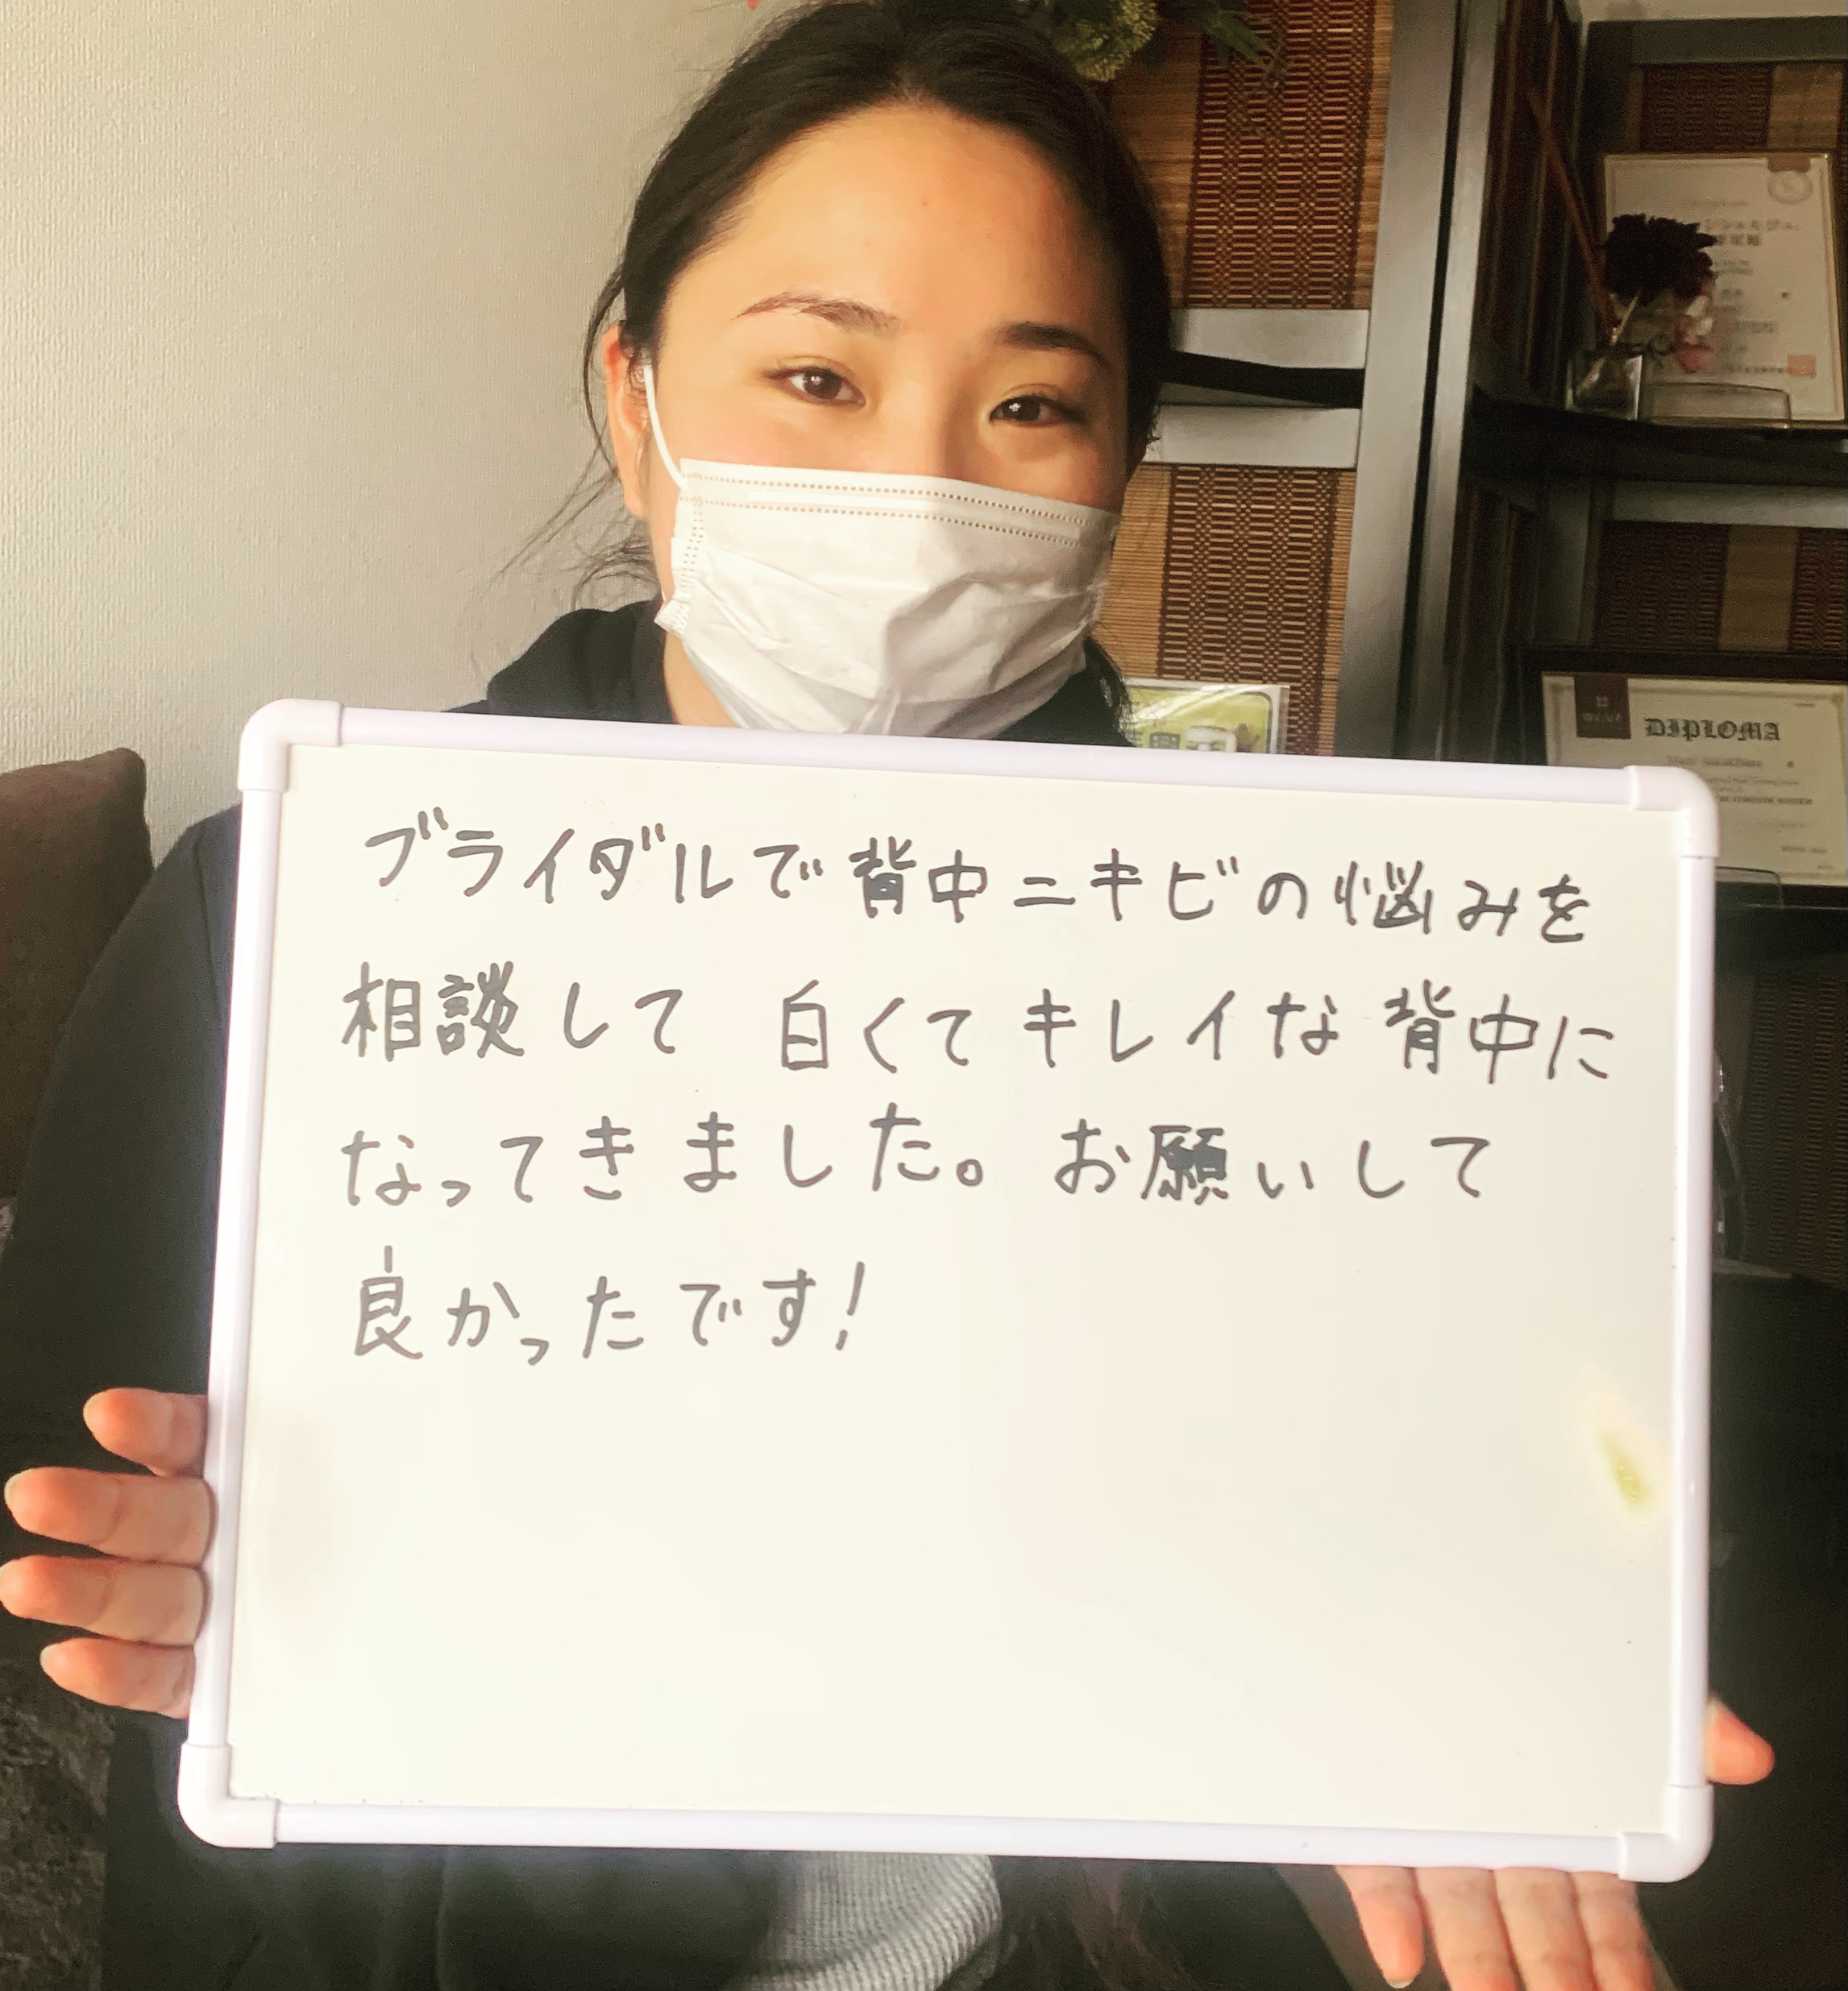 ブライダルで背中ニキビの悩みを
相談して 白くてキレイな背中に
なってきました。お願いして
良かったです!
DIPLOMA